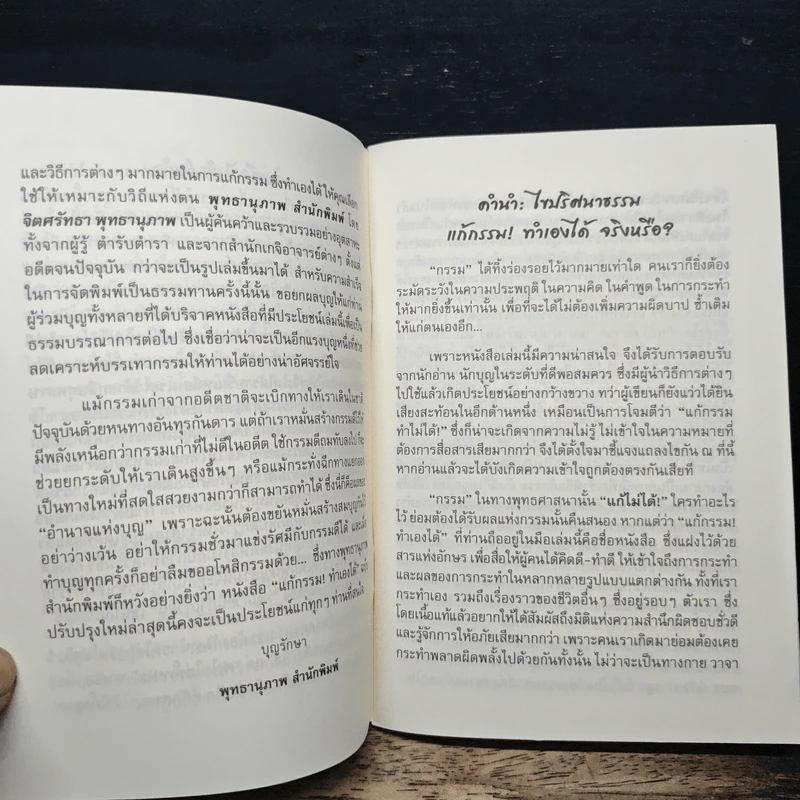 และวิธีการต่างๆ มากมายในการแก้กรรม ซึ่งทำเองได้ ให้คุณเลือก
ใช้ให้เหมาะกับวิถีแห่งตน พุทธานุภาพ สำนักพิมพ์ โดย
จิตศรัทธา พุทธานุภาพ เป็นผู้ค้นคว้าและรวบรวมอย่างอุตสาหะ
ทั้งจากผู้รู้ ตำรับตำรา และจากสำนักเกจิอาจารย์ต่างๆ ตั้งแต่
อดีตจนปัจจุบัน กว่าจะเป็นรูปเล่มขึ้นมาได้ สำหรับความสำเร็จ
ในการจัดพิมพ์เป็นธรรมทานครั้งนี้นั้น ขอยกผลบุญให้แก่ท่าน
ผู้ร่วมบุญทั้งหลายที่ได้บริจาคหนังสือที่มีประโยชน์เล่มนี้เพื่อเป็น
ธรรมบรรณาการต่อไป ซึ่งเชื่อว่าน่าจะเป็นอีกแรงบุญหนึ่งที่ช่วย
ลดเคราะห์บรรเทากรรมให้ท่านได้อย่างน่าอัศจรรย์ใจ
แม้กรรมเก่าจากอดีตชาติจะเบิกทางให้เราเดินในชาติ
ปัจจุบันด้วยหนทางอันทุรกันดาร แต่ถ้าเราหมั่นสร้างกรรมดีไว้ให้
มีพลังเหนือกว่ากรรมเก่าที่ไม่ดีในอดีต ใช้กรรมดีถมทับลงไป ก็จะ
ช่วยยกระดับให้เราเดินสูงขึ้นๆ หรือแม้กระทั่งฉีกทางแยกออก
เป็นทางใหม่ที่สดใสสวยงามกว่าก็สามารถทำได้ ซึ่งนี่ก็คือผลของ
“อำนาจแห่งบุญ” เพราะฉะนั้นต้องขยันหมั่นสร้างสมบุญกันไว้
อย่าว่างเว้น อย่าให้กรรมชั่วมาแข่งรัศมีกับกรรมดีได้ และเมื่อ
ทำบุญทุกครั้งก็อย่าลืมขออโหสิกรรมด้วย... ซึ่งทางพุทธานุภาพ
สำนักพิมพ์ก็หวังอย่างยิ่งว่า หนังสือ “แก้กรรม! ทำเองได้” ฉบับ
ปรับปรุงใหม่ล่าสุดนี้คงจะเป็นประโยชน์แก่ทุกๆ ท่านที่สนใจ
บุญรักษา
พุทธานุภาพ สำนักพิมพ์
คำนำ: ไขปริศนาธรรม
แก้กรรม! ทำเองได้ จริงหรือ?
“กรรม” ได้ทิ้งร่องรอยไว้มากมายเท่าใด คนเราก็ยิ่งต้อง
ระมัดระวังในความประพฤติ ในความคิด ในคำพูด ในการกระทำ
ให้มากยิ่งขึ้นเท่านั้น เพื่อที่จะได้ไม่ต้องเพิ่มความผิดบาป ซ้ำเติม
ให้แก่ตนเองอีก...
เพราะหนังสือเล่มนี้มีความน่าสนใจ จึงได้รับการตอบรับ
จากนักอ่าน นักบุญในระดับที่ดีพอสมควร ซึ่งมีผู้นำวิธีการต่างๆ
ไปใช้แล้วเกิดประโยชน์อย่างกว้างขวาง ทว่าผู้เขียนก็ยังแว่วได้ยิน
เสียงสะท้อนในอีกด้านหนึ่ง เหมือนเป็นการโจมตีว่า “แก้กรรม
ทำไม่ได้!” ซึ่งก็น่าจะเกิดจากความไม่รู้ ไม่เข้าใจในความหมายที่
ต้องการสื่อสารเสียมากกว่า จึงได้ตั้งใจมาชี้แจงแถลงไขกัน ณ ที่นี้
หากอ่านแล้วจะได้บังเกิดความเข้าใจถูกต้องตรงกันเสียที
“กรรม” ในทางพุทธศาสนานั้น “แก้ไม่ได้!” ใครทำอะไร
ไว้ ย่อมต้องได้รับผลแห่งกรรมนั้นคืนสนอง หากแต่ว่า “แก้กรรม!
ทำเองได้” ที่ท่านถืออยู่ในมือเล่มนี้คือชื่อหนังสือ ซึ่งแฝงไว้ด้วย
สารแห่งอักษร เพื่อสื่อให้ผู้คนได้คิดดี-ทำดี ให้เข้าใจถึงการกระทำ
และผลของการกระทำในหลากหลายรูปแบบแตกต่างกัน ทั้งที่เรา
กระทำเอง รวมถึงเรื่องราวของชีวิตอื่นๆ ซึ่งอยู่รอบๆ ตัวเรา ซึ่ง
โดยเนื้อแท้แล้วอยากให้ได้สัมผัสถึงมิติแห่งความสำนึกผิดชอบชั่วดี
และรู้จักการให้อภัยเสียมากกว่า เพราะคนเราเกิดมาย่อมต้องเคย
กระทำพลาดผิดพลั้งไปด้วยกันทั้งนั้น ไม่ว่าจะเป็นทางกาย วาจา